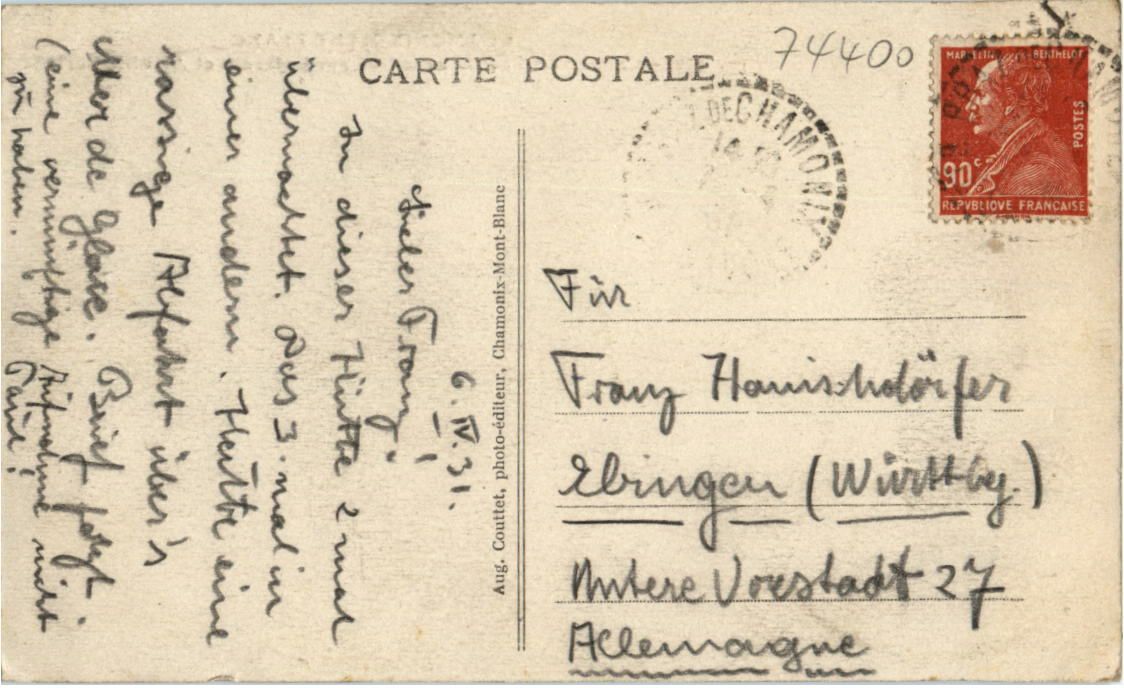 CARTE POSTALE
74400
MARCELIN BERTHELOT
POSTES
90c
REPVBLIQVE FRANÇAISE
DE CHAMONIX
14
6. IV. 31.
Lieber Franz!
In dieser Hütte 2 mal
übernachtet. Das 3. mal in
einer andern. Heute eine
rassige Abfahrt über's
Mer de Glace. Brief folgt.
(eine vernünftige Aufnahme nicht
zu haben.
Paul!
Aug. Couttet, photo-éditeur, Chamonix-Mont-Blanc
Für
Franz
Ebingen (Württbg.)
Untere Vorstadt 27
Allemagne